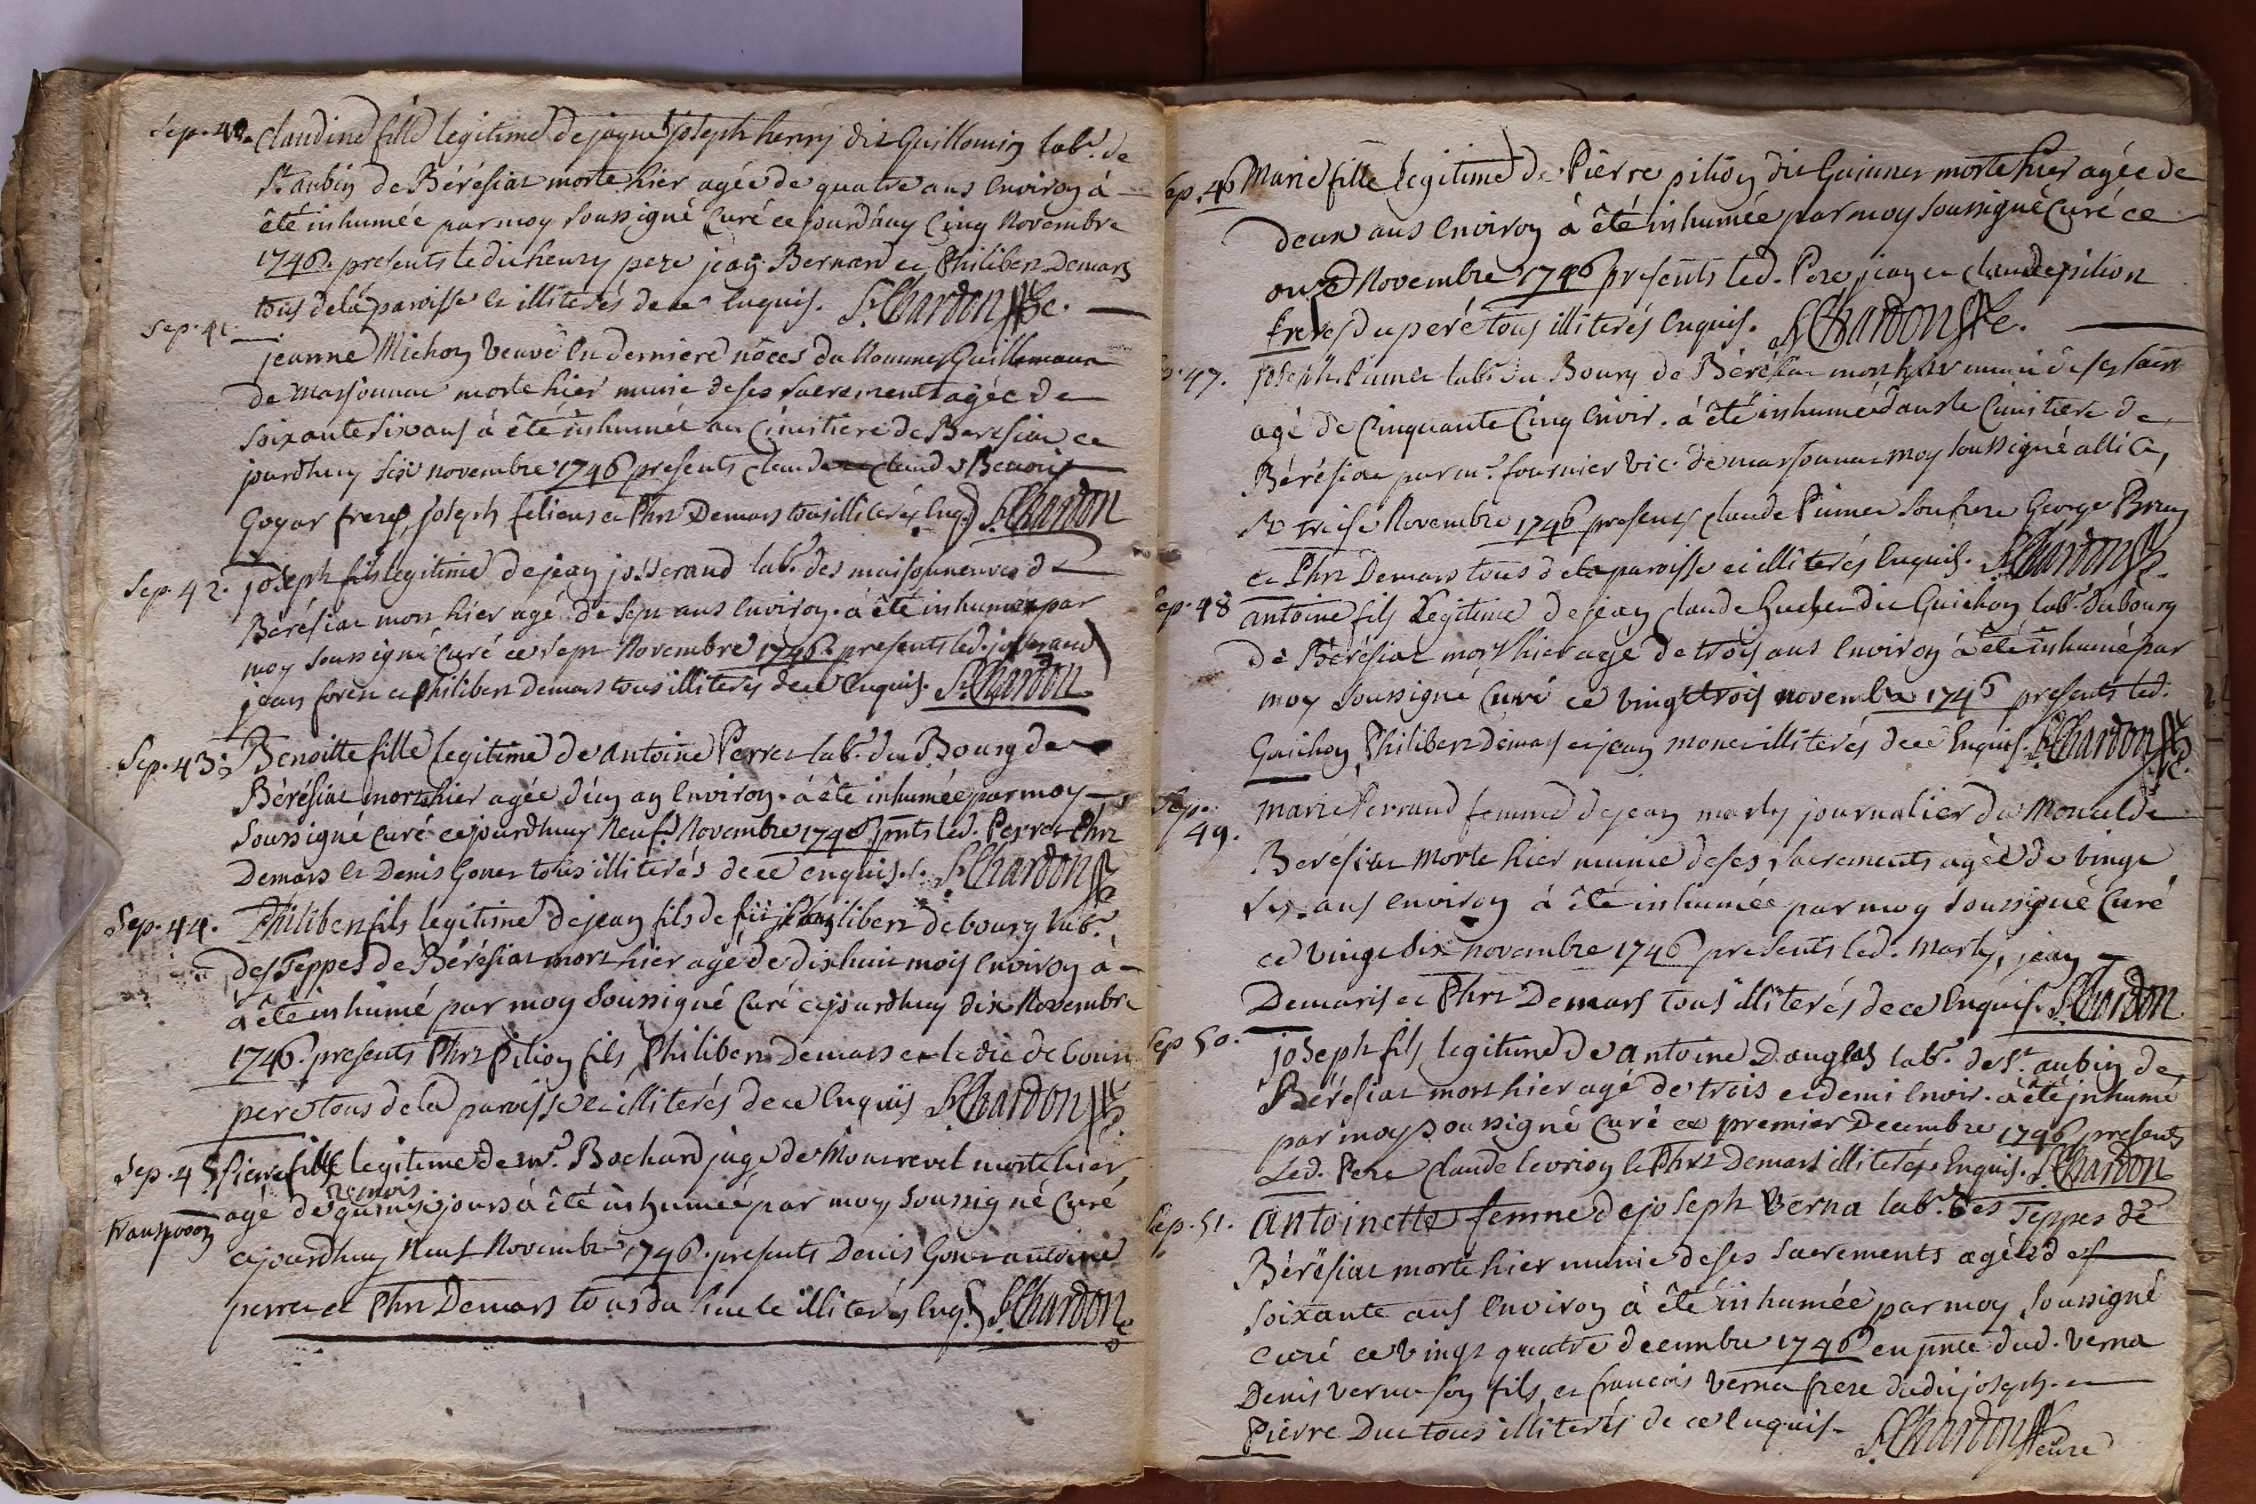 Sep. 40. Claudine fille legitime de joseph henry dit Guillomin lab.r de
St aubin de Bérésiat morte hier agée de quatre ans environ à
été inhumée par moy soussigné Curé ce jourdhuy Cinq Novembre
1746. presents ledit henry pere jean Bernard et Philibert Demars
tous dela paroisse et illiterés de ce Enquis. Chardon
Sep. 41.
jeanne Michon Veuve en derniere nôces du Nommé Guillemaux
de Marsonnac morte hier munie de ses sacrements agée de
soixante six ans à été inhumée au Cimitiere de Beresiat ce
jourdhuy six novembre 1746 presents claude Benoist
Goyar freres, joseph felieux et Phrt Demars tous illiterés Enq. Chardon
Sep. 42. joseph fils legitime de jean josserand lab.r des maisonneuves de
Bérésiat mort hier agé de sept ans environ à été inhumé par
moy soussigné Curé ce sept Novembre 1746. presents led. josserand
jean foret et Philibert Demars tous illiterés de ce Enquis. Chardon
Sep. 43. Benoitte fille legitime de antoine Perret lab.r du Bourg de
Bérésiat morte hier agée d'un an Environ. à été inhumée par moy
soussigné Curé cejourdhuy Neuf Novembre 1746. pnts led. Perret Phrt
Demars et Denis Gonet tous illiterés de ce enquis. Chardon
Sep. 44. Philibert fils legitime de jean fils de Philibert debourg lab.r
des Teppes de Bérésiat mort hier agé de dixhuit mois Environ à
à été inhumé par moy soussigné Curé cejourdhuy dix Novembre
1746. presents Phrt Pilion fils, Philibert Demars et ledit debourg
pere tous de la paroisse et illiterés de ce Enquis Chardon
Sep. 45. Pierre fille legitime de mr. Bochard juge de Monrevel morte hier
agé de jours à été inhumée par moy soussigné Curé
cejourdhuy Neuf Novembre 1746. presents Denis Gonet antoine
perret et Phrt Demars tous du lieu et illiterés Enq. Chardon
Sep. 46 Marie fille legitime de Pierre pilion dit Guionet morte hier agée de
deux ans Environ à été inhumée par moy soussigné Curé ce
onze Novembre 1746 presents led. Pere jean et claude pilion
freres du pere tous illiterés Enquis. Chardon
47. joseph Pimet lab.r du Bourg de Bérésiat mort hier muni de ses sacr.
agé de Cinquante Cinq Envir. à été inhumé dans le Cimitiere de
Bérésiat par mr. fournier vic. de marsonnac moy soussigné
treise Novembre 1746 presents claude Pimet son frere George
et Phrt Demars tous dela paroisse et illiterés Enquis. Chardon
Sep. 48 antoine fils Legitime de jean claude dit Guichon lab.r du bourg
de Bérésiat mort hier agé de trois ans Environ à été inhumé par
moy soussigné Curé ce vingt trois novembre 1746 presents led.
Guichon, Philibert Demars et jean monet illiterés de ce Enquis. Chardon
Sep. 49. marie ferraud femme de jean marly journalier du Moncel de
Beresiat Morte hier munie de ses sacrements agée de vingt
six ans environ à été inhumée par moy soussigné Curé
ce vingt six novembre 1746 presents led. Marly, jean
Demaris et Phrt Demars tous illiterés de ce Enquis. Chardon
Sep 50. joseph fils legitime de antoine Douglas lab.r de St. aubin de
Bérésiat mort hier agé de trois et demi Envir. à été inhumé
par moy soussigné Curé ce premier Decembre 1746 presents
Led. Pere claude levrion et Phrt Demars illiterés Enquis. Chardon
Sep. 51. Antoinette femme de joseph Verna lab.r des Teppes de
Bérésiat morte hier munie de ses sacrements agée de
soixante ans Environ à été inhumée par moy soussigné
Curé ce vingt quatre decembre 1746 en pnce dud. verna
Denis verna son fils, et francois verna frere dudit joseph et
Pierre Duc tous illiterés de ce Enquis. Chardon curé